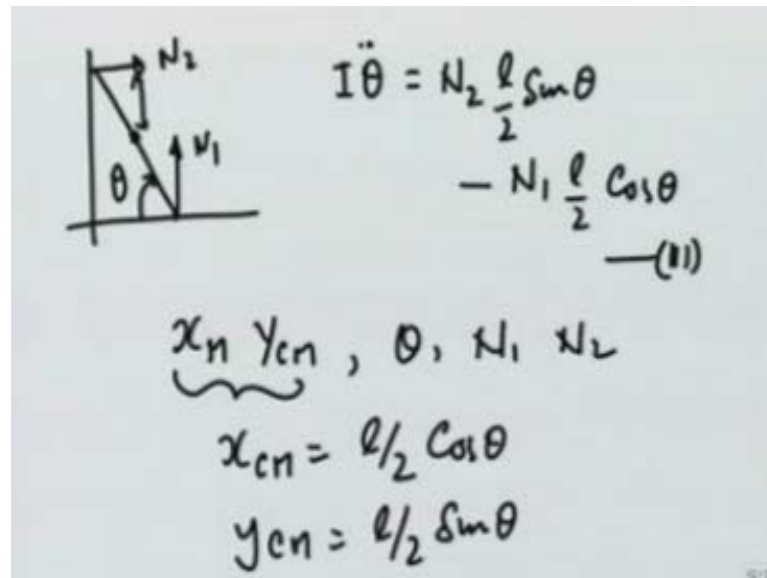 N₂
N₁
θ
Iθ̈ = N₂ l/2 Sinθ
− N₁ l/2 Cosθ
—(III)
xₘ ycm, θ, N₁ N₂
xcm = l/2 Cosθ
ycm = l/2 Sinθ